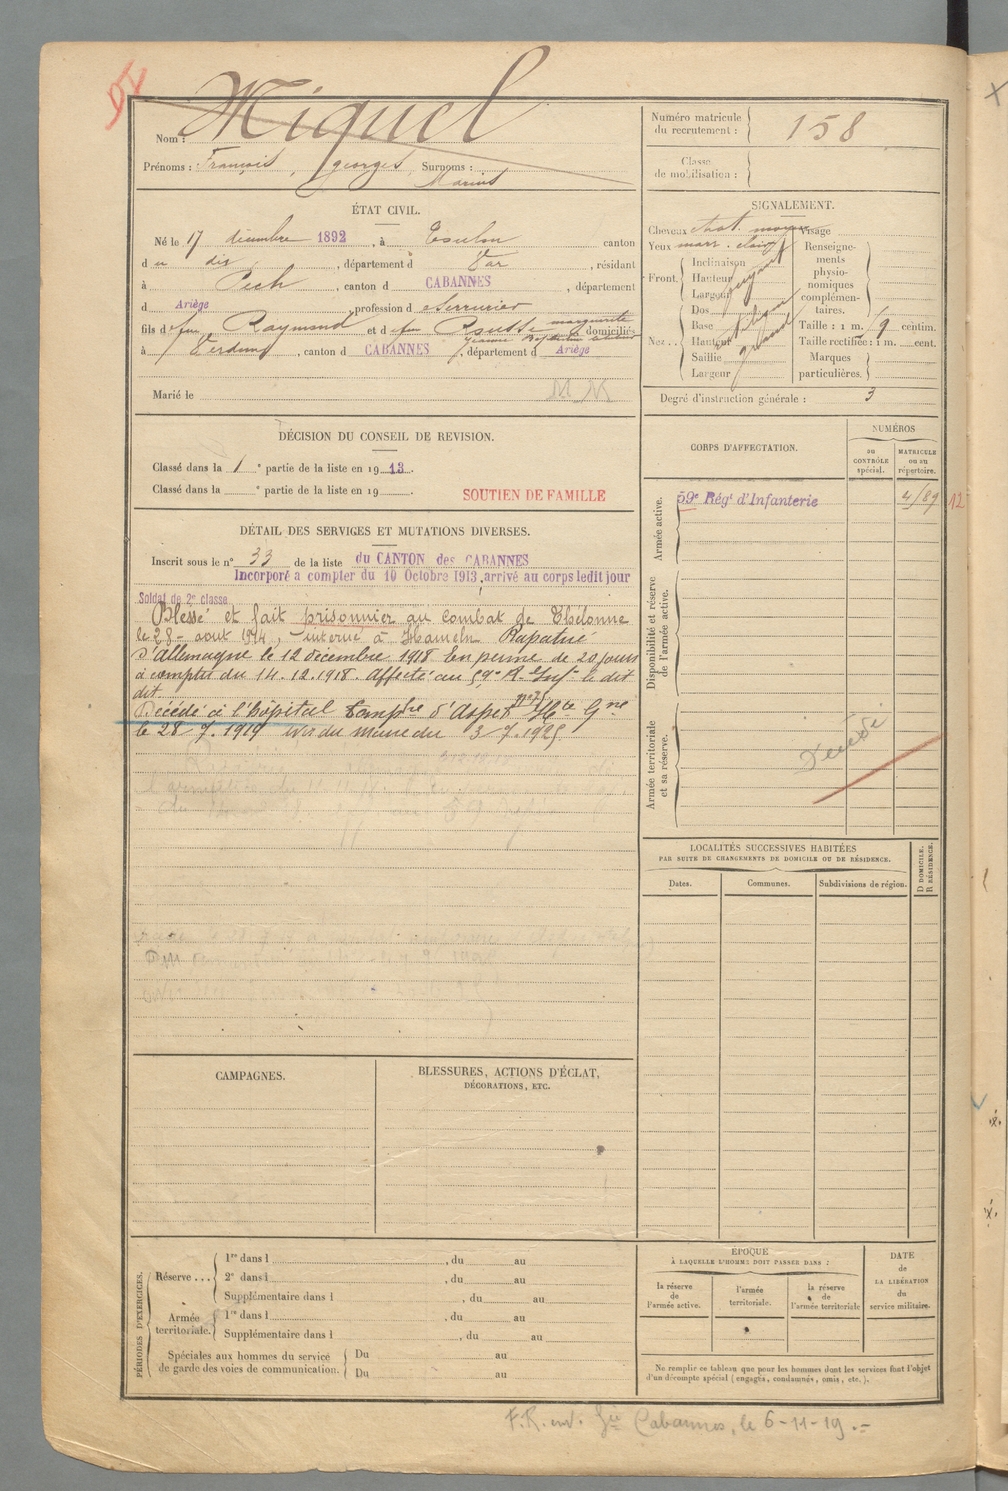 DI
Nom : Miquel
Prénoms : François, georges, Surnoms :
Marius
ÉTAT CIVIL.
Né le 17 décembre 1892, à Toulon canton
d u dit, département d Var, résidant
à Pech, canton d CABANNES, département
d Ariège, profession d Serrurier
fils d feu Raymond et d feu marguerite domiciliés
à Verdun, canton d CABANNES, département d Ariège
Marié le
DÉCISION DU CONSEIL DE REVISION.
Classé dans la 1e partie de la liste en 1913.
Classé dans la e partie de la liste en 19 .
SOUTIEN DE FAMILLE
DÉTAIL DES SERVICES ET MUTATIONS DIVERSES.
Inscrit sous le n° 33 de la liste du CANTON des CABANNES
Incorporé à compter du 10 Octobre 1913, arrivé au corps ledit jour
Soldat de 2e classe
Blessé et fait prisonnier au combat de Thélonne
le 28 - aout 1914, interné à Hameln Rapatrié
d'Allemagne le 12 décembre 1918 En perme de 20 jours
à compter du 14.12.1918. Affecté au 59e R. d'Inf. le dit
dit.
Décédé à l'hôpital tempre d'Aspet Hte Gne
le 28.7.1919 avis du Maire du 3.7.1925
CAMPAGNES.
BLESSURES, ACTIONS D'ÉCLAT,
DÉCORATIONS, ETC.
PÉRIODES D'EXERCICES.
Réserve ...
1re dans l , du au
2e dans l , du au
Supplémentaire dans l , du au
Armée territoriale.
1re dans l , du au
Supplémentaire dans l , du au
Spéciales aux hommes du service
de garde des voies de communication.
Du au
Du au
Numéro matricule
du recrutement : 158
Classe
de mobilisation :
SIGNALEMENT.
Cheveux chat. moyen
Yeux marr. clair
Front. Inclinaison fuyant
Hauteur
Largeur
Nez .. Dos
Base
Hauteur grand
Saillie
Largeur
Visage
Renseignements
physionomiques
complémentaires.
Taille : 1 m. 69 centim.
Taille rectifiée : 1 m. cent.
Marques
particulières.
Degré d'instruction générale : 3
CORPS D'AFFECTATION.
NUMÉROS
au
CONTRÔLE
spécial.
MATRICULE
ou au
répertoire.
Armée active.
59e Régt d'Infanterie 4189 12
Disponibilité et réserve
de l'armée active.
Armée territoriale
et sa réserve.
Décédé
LOCALITÉS SUCCESSIVES HABITÉES
PAR SUITE DE CHANGEMENTS DE DOMICILE OU DE RÉSIDENCE.
Dates.
Communes.
Subdivisions de région.
D DOMICILE.
R RÉSIDENCE.
ÉPOQUE
À LAQUELLE L'HOMME DOIT PASSER DANS :
la réserve
de
l'armée active.
l'armée
territoriale.
la réserve
de
l'armée territoriale
DATE
de
LA LIBÉRATION
du
service militaire.
Ne remplir ce tableau que pour les hommes dont les services font l'objet
d'un décompte spécial (engagés, condamnés, omis, etc.).
F.R. env. Gie Cabannes, le 6-11-19 .-